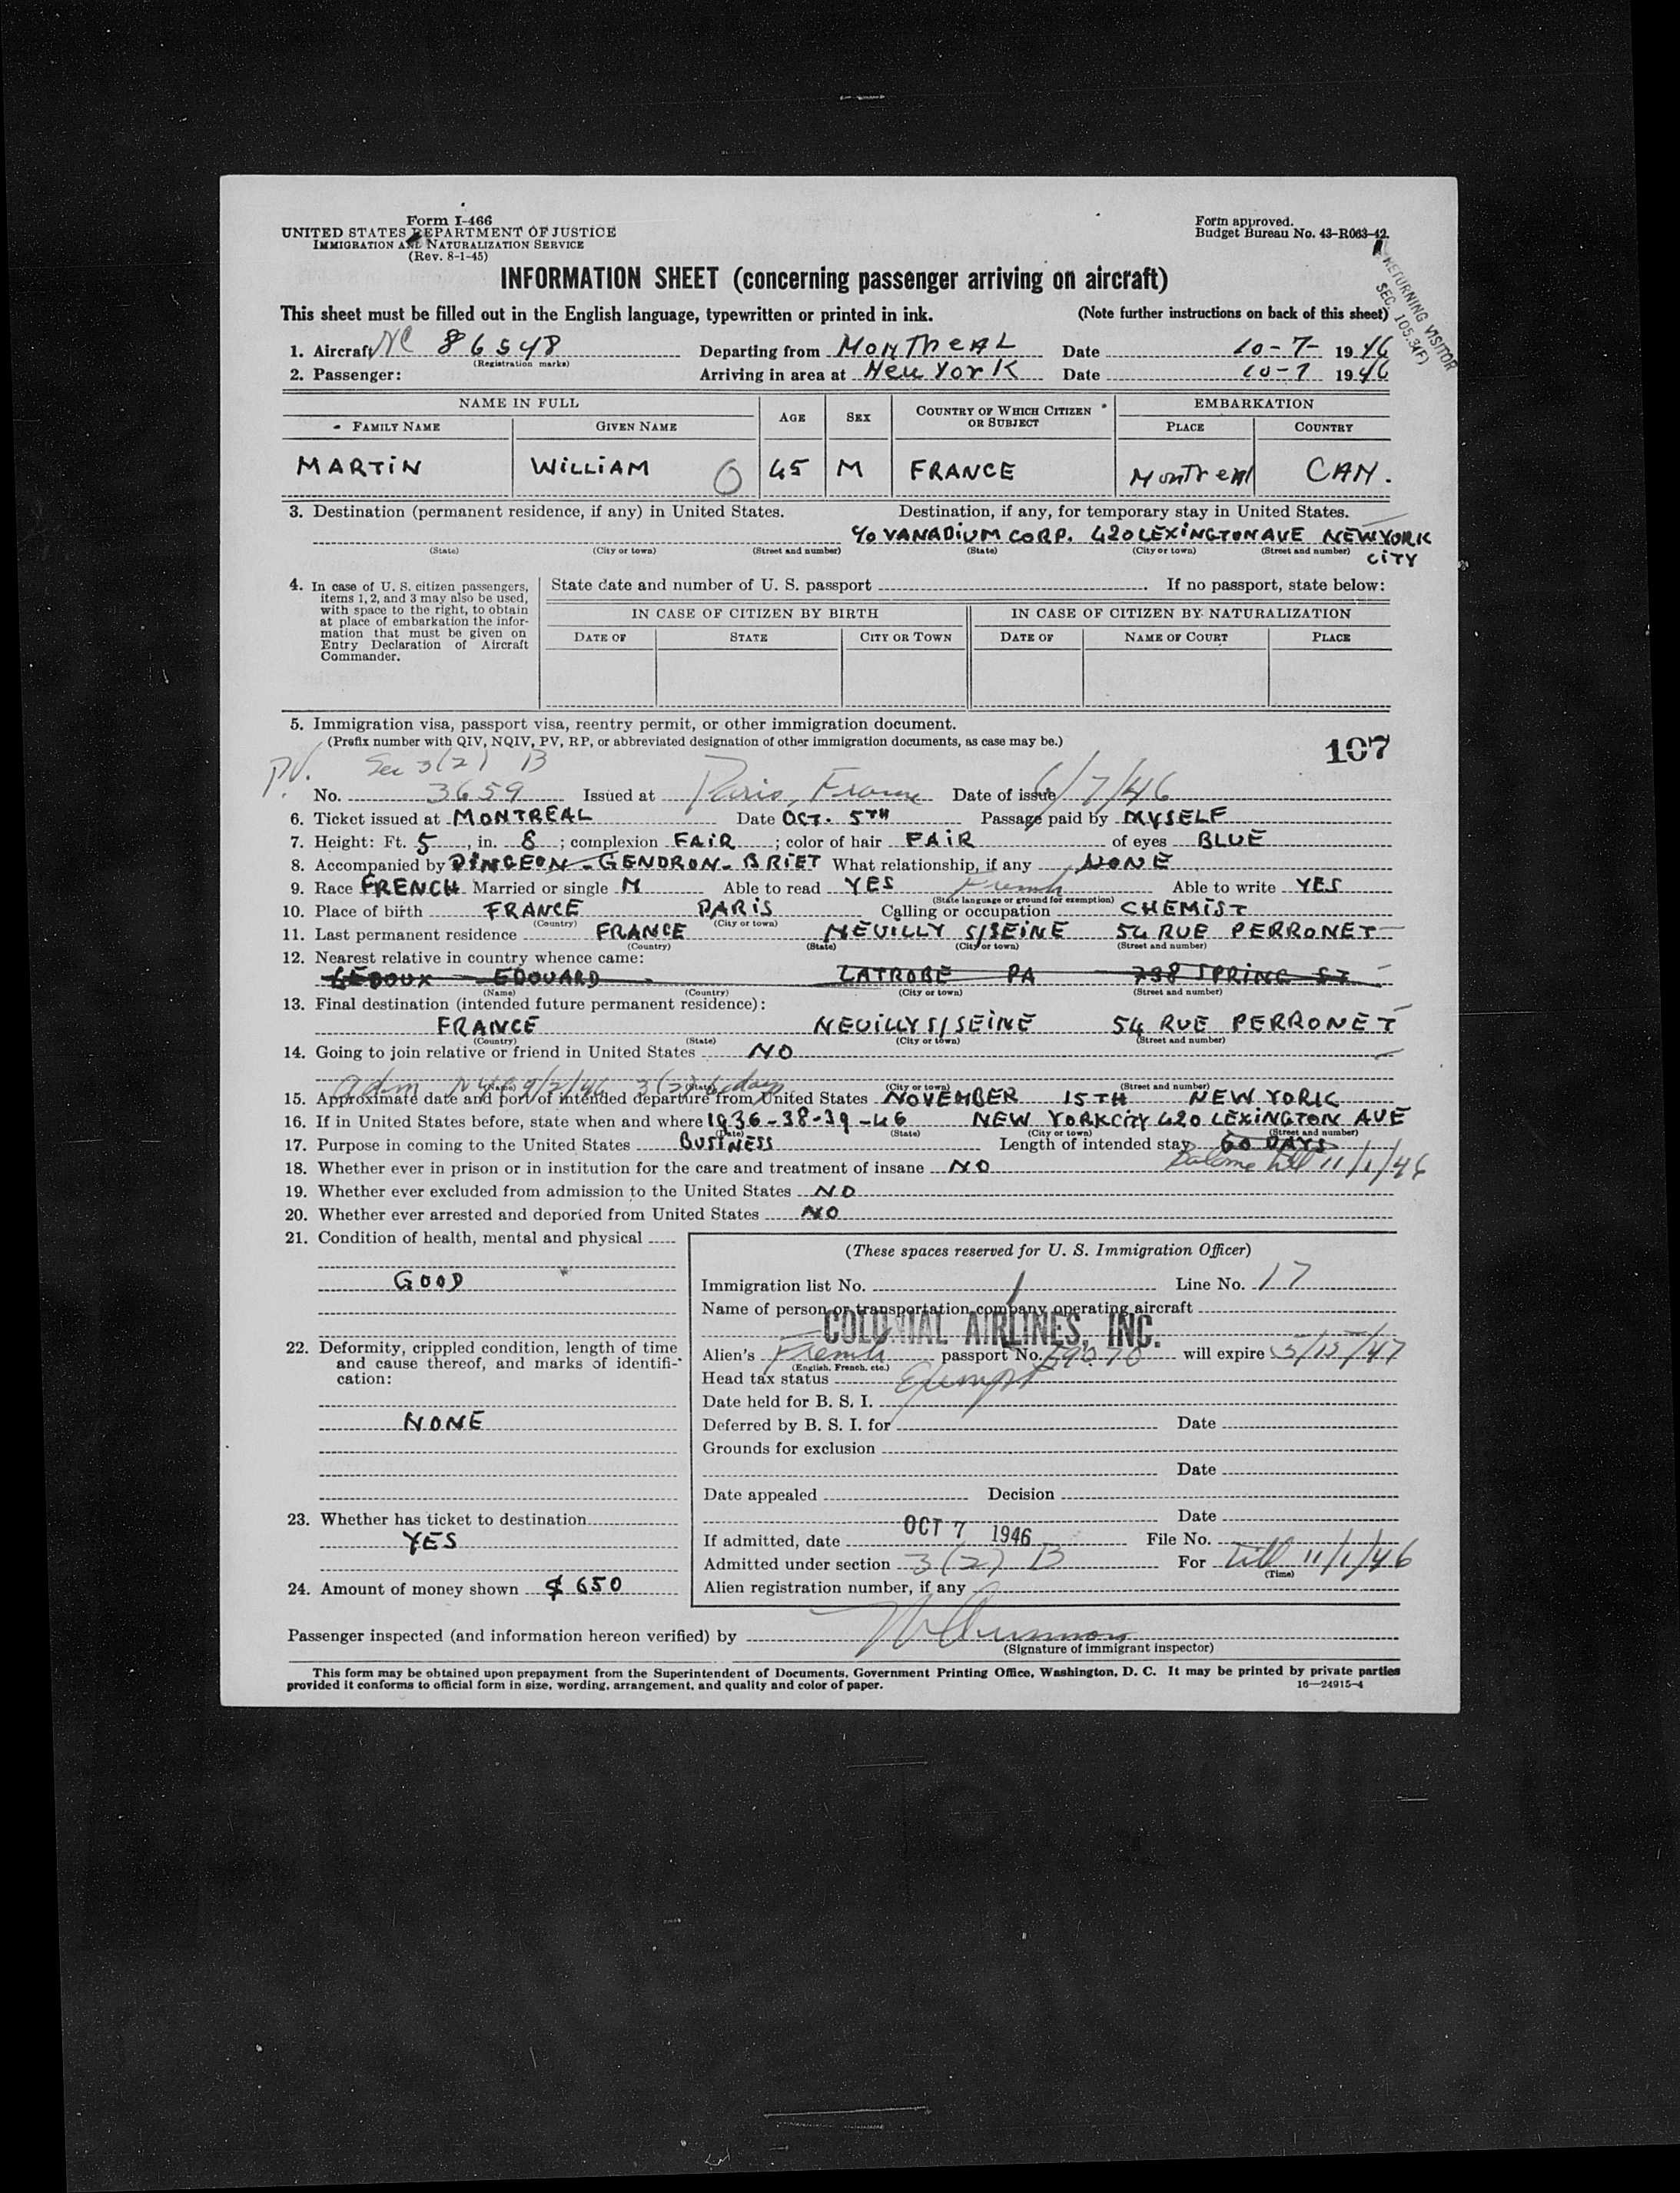 Form I-466
UNITED STATES DEPARTMENT OF JUSTICE
IMMIGRATION AND NATURALIZATION SERVICE
(Rev. 8-1-45)
Form approved.
Budget Bureau No. 43-R063-42.
RETURNING VISITOR
SEC. 105.3(F)
INFORMATION SHEET (concerning passenger arriving on aircraft)
This sheet must be filled out in the English language, typewritten or printed in ink. (Note further instructions on back of this sheet)
1. Aircraft NC 86548 Departing from MONTREAL Date 10-7- 1946
(Registration marks)
2. Passenger: Arriving in area at New York Date 10-7 1946
NAME IN FULL AGE SEX COUNTRY OF WHICH CITIZEN OR SUBJECT EMBARKATION
FAMILY NAME GIVEN NAME PLACE COUNTRY
MARTIN WILLIAM O 45 M FRANCE Montreal CAN.
3. Destination (permanent residence, if any) in United States. Destination, if any, for temporary stay in United States.
c/o VANADIUM CORP. 420 LEXINGTON AVE NEW YORK
(State) (City or town) (Street and number) (State) (City or town) (Street and number) CITY
4. In case of U. S. citizen passengers, items 1, 2, and 3 may also be used, with space to the right, to obtain at place of embarkation the information that must be given on Entry Declaration of Aircraft Commander.
State date and number of U. S. passport If no passport, state below:
IN CASE OF CITIZEN BY BIRTH IN CASE OF CITIZEN BY NATURALIZATION
DATE OF STATE CITY OR TOWN DATE OF NAME OF COURT PLACE
5. Immigration visa, passport visa, reentry permit, or other immigration document.
(Prefix number with QIV, NQIV, PV, RP, or abbreviated designation of other immigration documents, as case may be.)
107
P.V. Sec 3(2) B
No. 3659 Issued at Paris, France Date of issue 6/7/46
6. Ticket issued at MONTREAL Date OCT. 5TH Passage paid by MYSELF
7. Height: Ft. 5, in. 8; complexion FAIR; color of hair FAIR of eyes BLUE
8. Accompanied by DINGEON - GENDRON - BRIET What relationship, if any NONE
9. Race FRENCH Married or single M Able to read YES French Able to write YES
(State language or ground for exemption)
10. Place of birth FRANCE PARIS Calling or occupation CHEMIST
(Country) (City or town)
11. Last permanent residence FRANCE NEUILLY S/SEINE 54 RUE PERRONET
(Country) (State) (City or town) (Street and number)
12. Nearest relative in country whence came:
GEDOUX EDOUARD LATROBE PA 738 SPRING ST
(Name) (Country) (City or town) (Street and number)
13. Final destination (intended future permanent residence):
FRANCE NEUILLY S/SEINE 54 RUE PERRONET
(Country) (State) (City or town) (Street and number)
14. Going to join relative or friend in United States NO
adm NYC 9/2/46 3(2) days
(Name) (State) (City or town) (Street and number)
15. Approximate date and port of intended departure from United States NOVEMBER 15TH NEW YORK
16. If in United States before, state when and where 1936-38-39-46 NEW YORK CITY 420 LEXINGTON AVE
(Date) (State) (City or town) (Street and number)
17. Purpose in coming to the United States BUSINESS Length of intended stay 60 DAYS
18. Whether ever in prison or in institution for the care and treatment of insane NO till 11/1/46
19. Whether ever excluded from admission to the United States NO
20. Whether ever arrested and deported from United States NO
21. Condition of health, mental and physical
GOOD
22. Deformity, crippled condition, length of time and cause thereof, and marks of identification:
NONE
23. Whether has ticket to destination
YES
24. Amount of money shown $ 650
(These spaces reserved for U. S. Immigration Officer)
Immigration list No. 1 Line No. 17
Name of person or transportation company operating aircraft
COLONIAL AIRLINES, INC.
Alien's French passport No. will expire 5/15/47
(English, French, etc.)
Head tax status Exempt
Date held for B. S. I.
Deferred by B. S. I. for Date
Grounds for exclusion
Date
Date appealed Decision
Date
If admitted, date OCT 7 1946 File No.
Admitted under section 3(2) B For till 11/1/46
(Time)
Alien registration number, if any
Passenger inspected (and information hereon verified) by
(Signature of immigrant inspector)
This form may be obtained upon prepayment from the Superintendent of Documents, Government Printing Office, Washington, D. C. It may be printed by private parties
provided it conforms to official form in size, wording, arrangement, and quality and color of paper. 16—24915-4